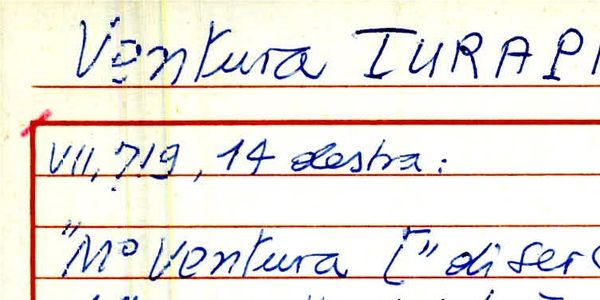 Ventura TURAPI
VII, 719, 14 destra:
"Mº Ventura [" di ser